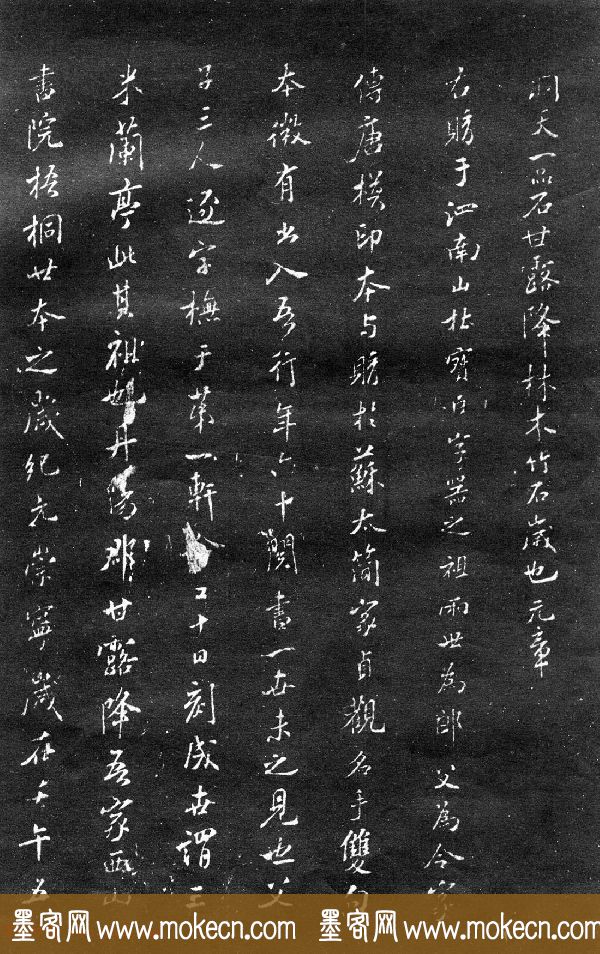 洞天一品石甘露降林木竹石歲也元章
右購于泗南山杜寶臣字器之祖兩世為郎父為令家
傳唐模印本与購於蘇太簡家貞觀名手雙勾
本微有出入吾行年六十閱書一世未之見也父
子三人逐字橅于第一軒 十日刻成世謂三
米蘭亭此其祖也丹陽郡甘露降吾家西山
書院梧桐世本之歲紀元崇寧歲在壬午五
墨客网 www.mokecn.com 墨客网 www.mokecn.com